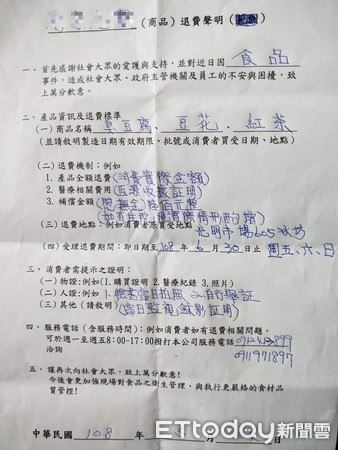 (商品)退費聲明(
一、首先感謝社會大眾的愛護與支持,並對近日因 食品
事件,造成社會大眾、政府主管機關及員工的不安與困擾,致
上萬分歉意。
二、產品資訊及退費標準
(一)商品名稱 臭豆腐、豆花、紅茶
(並請敘明製造日期有效期限、批號或消費者買受日期、地點)
(二)退費機制:例如
1.產品全額退費(消費實際金額)
2.醫療相關費用(医療收據証明)
3.補償金額
(三)退費地點:例如消費者原買受地點 光明市場605
(四)受理退費期間:即日起至108年6月30日止 周五、六、日
三、消費者需提示之證明:
(一)物證:例如(1.購買證明 2.醫療紀錄 3.照片)
(二)人證:例如
(三)其他(請敘明) (當日監視錄影証明)
四、服務電話(含服務時間):例如消費者如有退費相關問題,
可於週一至週五8:00-17:00撥打本公司服務電話
洽詢 0911971897
五、謹再次向社會大眾,致上萬分歉意!
今後會更加強現場對食品之衛生管理,與執行更嚴格的食材品
質管控!
中華民國 108 年 月 日
ETtoday新聞雲